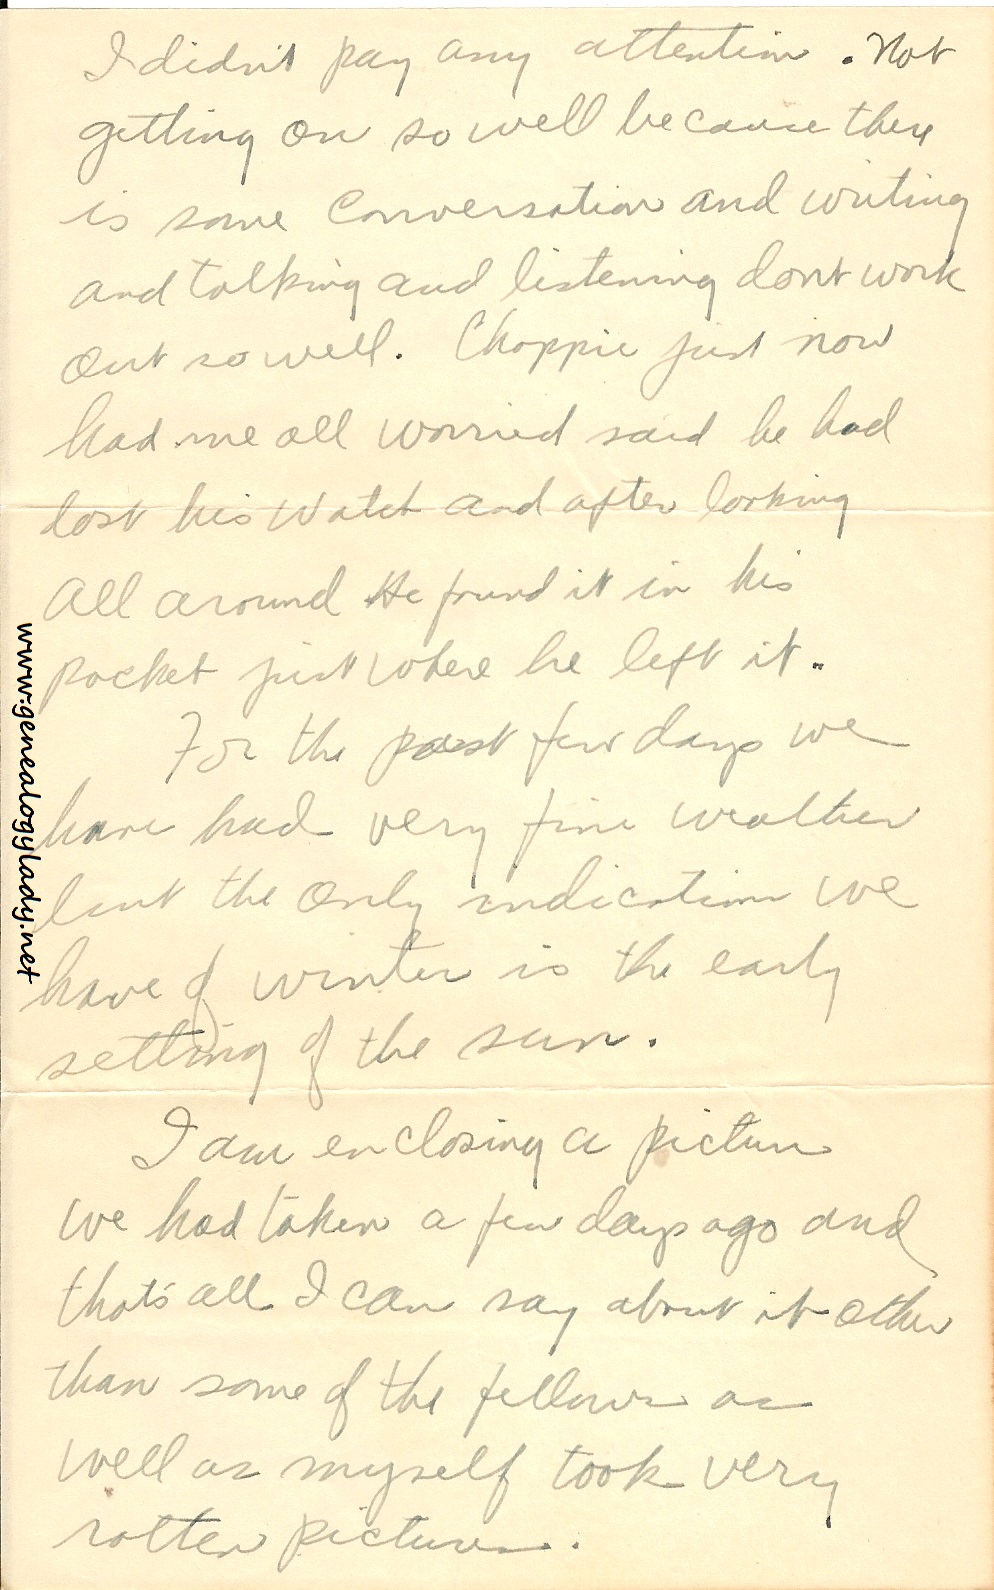 I didn't pay any attention. Not
getting on so well because there
is some conversation and writing
and talking and listening dont work
out so well. Choppie just now
had me all worried said he had
lost his watch and after looking
all around He found it in his
pocket just where he left it.
For the past few days we
have had very fine weather
but the only indication we
have of winter is the early
setting of the sun.
I am enclosing a picture
we had taken a few days ago and
thats all I can say about it other
than some of the fellows as
well as myself took very
rotten pictures.
www.genealogylady.net